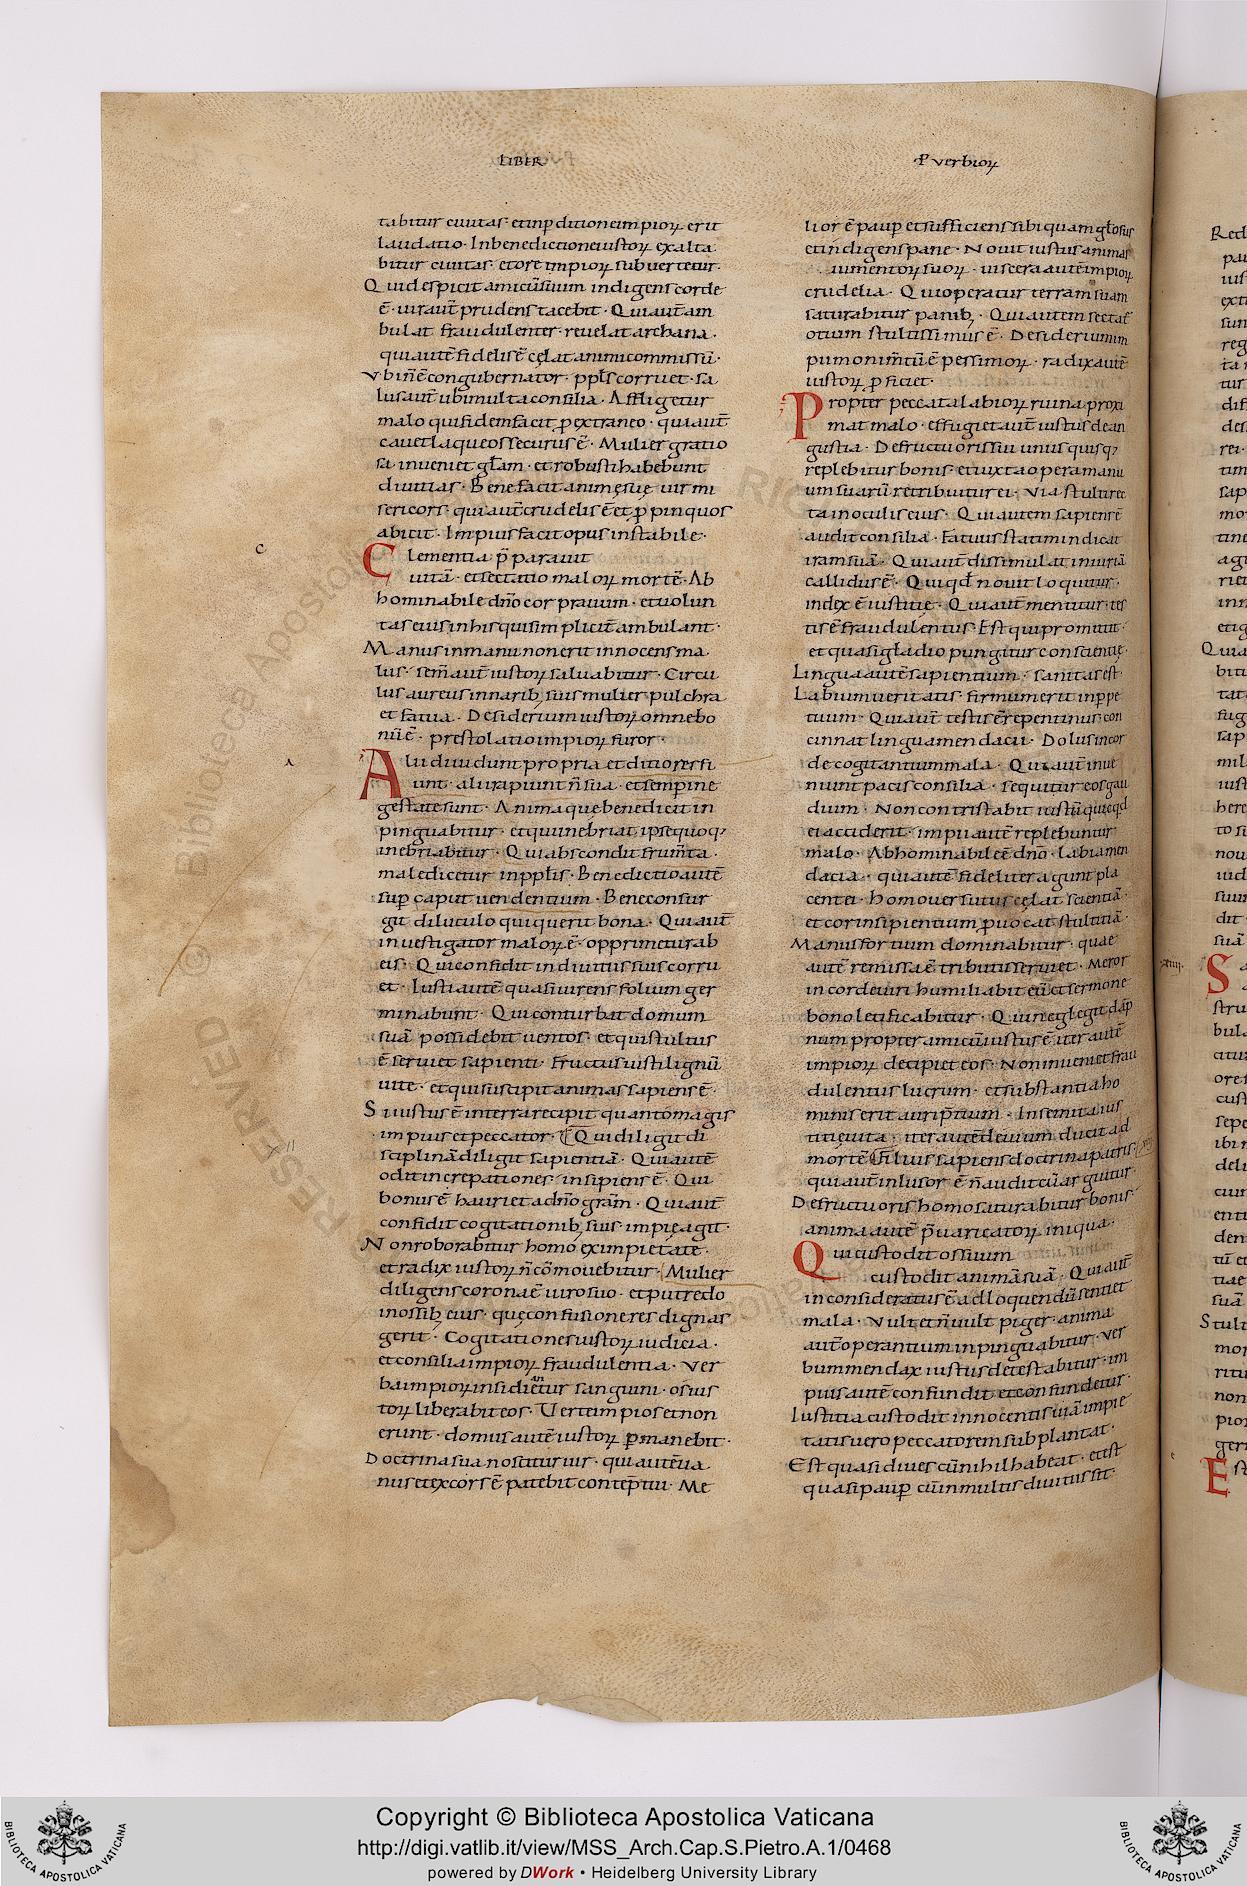 LIBER
tabitur ciuitas· et inp̄ditione impioꝝ erit
laudatio· In benedictione iustoꝝ exalta
bitur ciuitas· et ore impioꝝ subuertetur·
Qui despicit amicū suum indigens corde
ē· uir aut̄ prudens tacebit· Qui aut̄ am
bulat fraudulenter· reuelat archana·
qui autē fidelis ē cęlat animi commissū·
Vbi n̄ ē congubernator· ppl̄s corruet· sa
lus aut̄ ubi multa consilia· Affligetur
malo qui fidem facit p̄ extraneo· qui aut̄
cauet laqueos securus ē· Mulier gratio
sa inueniet gl̄am· et robusti habebunt
diuitias· Benefacit animę suę uir mi
sericors· qui aut̄ crudelis ē et p̄pinquos
abicit· Impius facit opus instabile·
Clementia p̄parauit
uitā· et sectatio maloꝝ mortē· Ab
hominabile dn̄o cor prauum· et uolun
tas eius in his qui simpliciť ambulant·
Manus in manu non erit innocens ma
lus· sem̄ aut̄ iustoꝝ saluabitur· Circu
lus aureus in narib; suis mulier pulchra
et fatua· Desiderium iustoꝝ omne bo
nū ē· prestolatio impioꝝ furor·
Alii diuidunt propria et ditiores fi
unt· alii rapiunt n̄ sua· et semp̄ in e
gestate sunt· Anima quę benedicit in
pinguabitur· et qui inebriat ipse quoq;
inebriabitur· Qui abscondit frum̄ta·
maledicetur in ppl̄is· Benedictio autē
sup̄ caput uendentium· Bene consur
git diluculo qui querit bona· Qui aut̄
inuestigator maloꝝ ē· opprimetur ab
eis· Qui confidit in diuitiis suis corru
et· Iusti autē quasi uirens folium ger
minabunt· Qui conturbat domum
suā possidebit uentos· et qui stultus
ē seruiet sapienti· Fructus iusti lignū
uite· et qui suscipit animas sapiens ē·
Si iustus ē in terra recipit quanto magis
impius et peccator· Qui diligit di
sciplinā diligit sapientiā· Qui autē
odit increpationes insipiens ē· Qui
bonus ē hauriet a dn̄o gram̄· Qui aut̄
confidit cogitationib; suis impie agit·
Non roborabitur homo ex impietate·
et radix iustoꝝ n̄ cōmouebitur· Mulier
diligens corona ē uiro suo· et putredo
in ossib; eius· quę confusione res dignas
gerit· Cogitationes iustoꝝ iudicia·
et consilia impioꝝ fraudulentia· Ver
ba impioꝝ insidiētur sanguini· os ius
toꝝ liberabit eos· Verte impios et non
erunt· domus autē iustoꝝ p̄manebit·
Doctrina sua noscitur uir· qui autē ua
nus et excors ē patebit contēptui· Me
P̄uerbioꝝ
lior ē paup̄ et sufficiens sibi quam gl̄osus
et indigens pane· Nouit iustus animas
iumentoꝝ suoꝝ· uiscera autē impioꝝ
crudelia· Qui operatur terram suam
saturabitur panib;· Qui autem sectať
otium stultissimus ē· Desiderium im
pii monim̄tū ē pessimoꝝ· radix autē
iustoꝝ p̄ficiet·
Propter peccata labioꝝ ruina proxi
mat malo· effugiet aut̄ iustus de an
gustia· De fructu oris sui unusquisq;
replebitur bonis· et iuxta opera manu
um suarū retribuitur ei· Via stulti rec
ta in oculis eius· Qui autem sapiens ē
audit consilia· Fatuus statim indicat
iram suā· Qui aut̄ dissimulat iniuriā
callidus ē· Qui qd̄ nouit loquitur·
index ē iustitię· Qui aut̄ mentitur· tes
tis ē fraudulentus· Est qui promittit·
et quasi gladio pungitur conscientię·
Lingua autē sapientium· sanitas est·
Labium ueritatis· firmum erit in p̄pe
tuum· Qui aut̄ testis ē repentinus· con
cinnat linguam endacii· Dolus in cor
de cogitantium mala· Qui aut̄ ineu
niunt pacis consilia· sequitur eos gau
dium· Non contristabit iustū quicqd
ei acciderit· impii autē replebuntur
malo· Abhominabile ē dn̄o· labia men
dacia· qui autē fideliter agunt pla
cent ei· homo uersutus cęlat scientiā·
et cor insipientium p̄uocat stultitiā·
Manus fortium dominabitur· quae
autē remissa ē tributis seruiet· Meror
in corde uiri humiliabit eū et sermone
bono letificabitur· Qui neglegit dāp
num propter amicū iustus ē· iter autē
impioꝝ decipiet eos· Non inueniet frau
dulentus lucrum· et substantia ho
minis erit auri p̄tium· In semita ius
titię uita· iter autē deuium ducit ad
mortē· Filius sapiens doctrina patris·
qui aut̄ inlusor ē n̄ audit cū arguitur·
De fructu oris homo saturabitur bonis·
anima autē p̄uaricatoꝝ iniqua·
Qui custodit os suum
custodit animā suā· Qui aut̄
inconsideratus ē ad loquendū sentiet
mala· Vult et n̄ uult piger· anima
aut̄ operantium inpinguabitur· Ver
bum mendax iustus detestabitur· im
pius autē confundit et confundetur·
Iustitia custodit innocentis uiā· impie
tatis uero peccatorem subplantat·
Est quasi diues cū nihil habeat· et est
quasi paup̄ cū in multis diuitiis sit·
Copyright © Biblioteca Apostolica Vaticana
http://digi.vatlib.it/view/MSS_Arch.Cap.S.Pietro.A.1/0468
powered by DWork • Heidelberg University Library
BIBLIOTECA APOSTOLICA VATICANA
BIBLIOTECA APOSTOLICA VATICANA